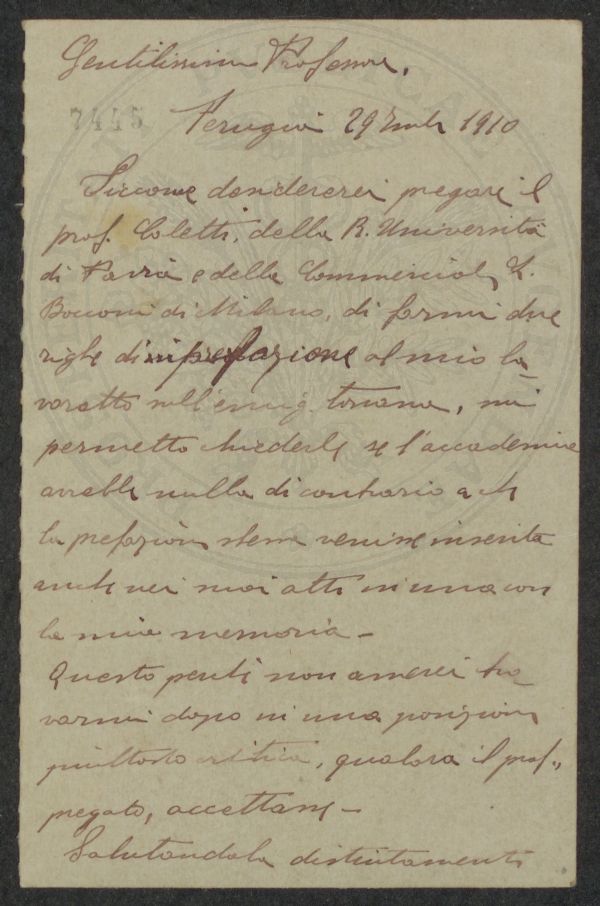 Gentilissimo Professore,
7445
Perugia 29 1910
Siccome desidererei pregare il
prof. Coletti, della R. Università
di Pavia e della Commerciale L.
Bocconi di Milano, di farmi due
righe di prefazione al mio la-
voretto sull'emig. toscana, mi
permetto chiederle se l'accademia
avrebbe nulla di contrario a che
la prefazione stessa venisse inserita
anche nei suoi atti in una con
la mia memoria -
Questo perché non amerei tro-
varmi dopo in una posizione
piuttosto critica, qualora il prof.,
pregato, accettasse -
Salutandola distintamente